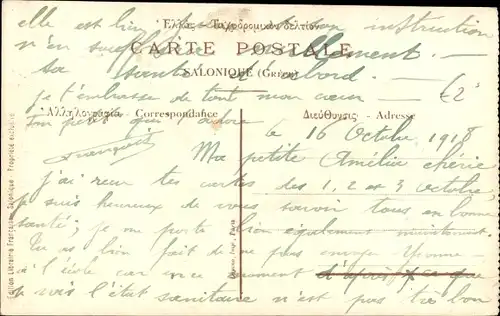 elle est bien son instruction
Ελλάς - Ταχυδρομικὸν δελτίον
n'en souffrira nullement.
CARTE POSTALE
sa santé d'abord. —
SALONIQUE (Grèce)
je t'embrasse de tout mon cœur — €2
Ἀλληλογραφία - Correspondance
Διεύθυνσις - Adresse
Ton petit qui t'adore
le 16 Octobre 1918
Ma petite Amélie chérie
j'ai reçu tes cartes des 1, 2 et 3 octobre,
je suis heureux de vous savoir tous en bonne
santé; je me porte bien également maintenant.
Tu as bien fait de ne pas envoyer Yvonne
à l'école car en ce moment d'après ce que
je vois l'état sanitaire n'est pas très bon
Edition Librairie Française, Salonique - Propriété exclusive
Impr., Paris